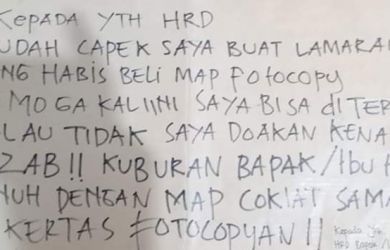 KEPADA YTH HRD
UDAH CAPEK SAYA BUAT LAMARA
NG HABIS BELI MAP FOTOCOPY
MOGA KALI INI SAYA BISA DITER
LAU TIDAK SAYA DOAKAN KENA
ZAB!! KUBURAN BAPAK/IBU H
UH DENGAN MAP COKLAT SAMA
KERTAS FOTOCOPYAN!!
Kepada Yth
HRD